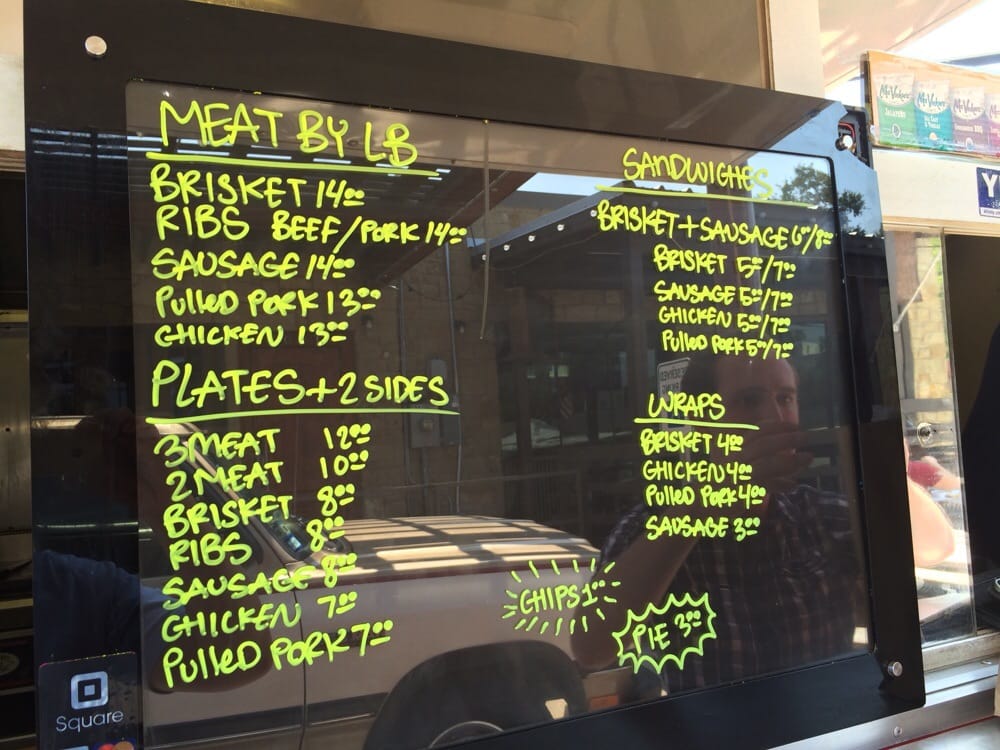 MEAT BY LB
BRISKET 14⁰⁰
RIBS BEEF/PORK 14⁰⁰
SAUSAGE 14⁰⁰
PULLED PORK 13⁰⁰
CHICKEN 13⁰⁰
PLATES+2 SIDES
3 MEAT 12⁰⁰
2 MEAT 10⁰⁰
BRISKET 8⁰⁰
RIBS 8⁰⁰
SAUSAGE 8⁰⁰
CHICKEN 7⁰⁰
PULLED PORK 7⁰⁰
SANDWICHES
BRISKET+SAUSAGE 6⁰⁰/8⁰⁰
BRISKET 5⁰⁰/7⁰⁰
SAUSAGE 5⁰⁰/7⁰⁰
CHICKEN 5⁰⁰/7⁰⁰
PULLED PORK 5⁰⁰/7⁰⁰
WRAPS
BRISKET 4⁰⁰
CHICKEN 4⁰⁰
PULLED PORK 4⁰⁰
SAUSAGE 3⁰⁰
CHIPS 1⁰⁰
PIE 3⁰⁰
Square
Miss Vickie's
JALAPEÑO